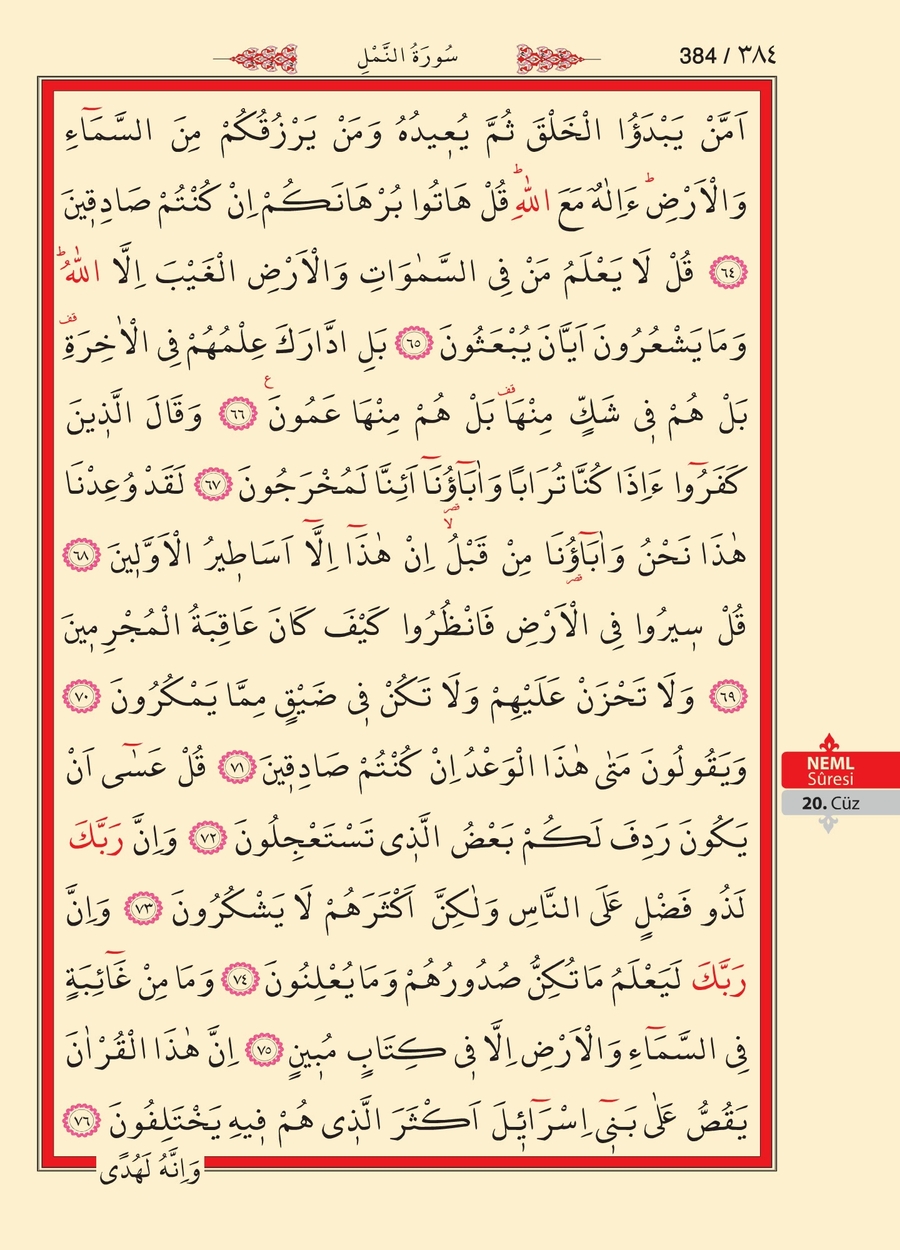 384 / ٣٨٤
سُورَةُ النَّمْلِ
اَمَّنْ يَبْدَؤُا الْخَلْقَ ثُمَّ يُعٖيدُهُ وَمَنْ يَرْزُقُكُمْ مِنَ السَّمَٓاءِ
وَالْاَرْضِؕ ءَاِلٰهٌ مَعَ اللّٰهِؕ قُلْ هَاتُوا بُرْهَانَكُمْ اِنْ كُنْتُمْ صَادِقٖينَ
﴿٦٤﴾ قُلْ لَا يَعْلَمُ مَنْ فِى السَّمٰوَاتِ وَالْاَرْضِ الْغَيْبَ اِلَّا اللّٰهُؕ
وَمَا يَشْعُرُونَ اَيَّانَ يُبْعَثُونَ ﴿٦٥﴾ بَلِ ادَّارَكَ عِلْمُهُمْ فِى الْاٰخِرَةِ قف
بَلْ هُمْ فٖى شَكٍّ مِنْهَا قف بَلْ هُمْ مِنْهَا عَمُونَ ع ﴿٦٦﴾ وَقَالَ الَّذٖينَ
كَفَرُٓوا ءَاِذَا كُنَّا تُرَابًا وَاٰبَٓاؤُنَٓا اَئِنَّا لَمُخْرَجُونَ ﴿٦٧﴾ لَقَدْ وُعِدْنَا
هٰذَا نَحْنُ وَاٰبَٓاؤُنَا مِنْ قَبْلُۙ اِنْ هٰذَٓا اِلَّٓا اَسَاطٖيرُ الْاَوَّلٖينَ ﴿٦٨﴾
قُلْ سٖيرُوا فِى الْاَرْضِ فَانْظُرُوا كَيْفَ كَانَ عَاقِبَةُ الْمُجْرِمٖينَ
﴿٦٩﴾ وَلَا تَحْزَنْ عَلَيْهِمْ وَلَا تَكُنْ فٖى ضَيْقٍ مِمَّا يَمْكُرُونَ ﴿٧٠﴾
وَيَقُولُونَ مَتٰى هٰذَا الْوَعْدُ اِنْ كُنْتُمْ صَادِقٖينَ ﴿٧١﴾ قُلْ عَسٰٓى اَنْ
يَكُونَ رَدِفَ لَكُمْ بَعْضُ الَّذٖى تَسْتَعْجِلُونَ ﴿٧٢﴾ وَاِنَّ رَبَّكَ
لَذُو فَضْلٍ عَلَى النَّاسِ وَلٰكِنَّ اَكْثَرَهُمْ لَا يَشْكُرُونَ ﴿٧٣﴾ وَاِنَّ
رَبَّكَ لَيَعْلَمُ مَا تُكِنُّ صُدُورُهُمْ وَمَا يُعْلِنُونَ ﴿٧٤﴾ وَمَا مِنْ غَٓائِبَةٍ
فِى السَّمَٓاءِ وَالْاَرْضِ اِلَّا فٖى كِتَابٍ مُبٖينٍ ﴿٧٥﴾ اِنَّ هٰذَا الْقُرْاٰنَ
يَقُصُّ عَلٰى بَنٖٓى اِسْرَٓائٖلَ اَكْثَرَ الَّذٖى هُمْ فٖيهِ يَخْتَلِفُونَ ﴿٧٦﴾
وَاِنَّهُ لَهُدًى
NEML
Sûresi
20. Cüz